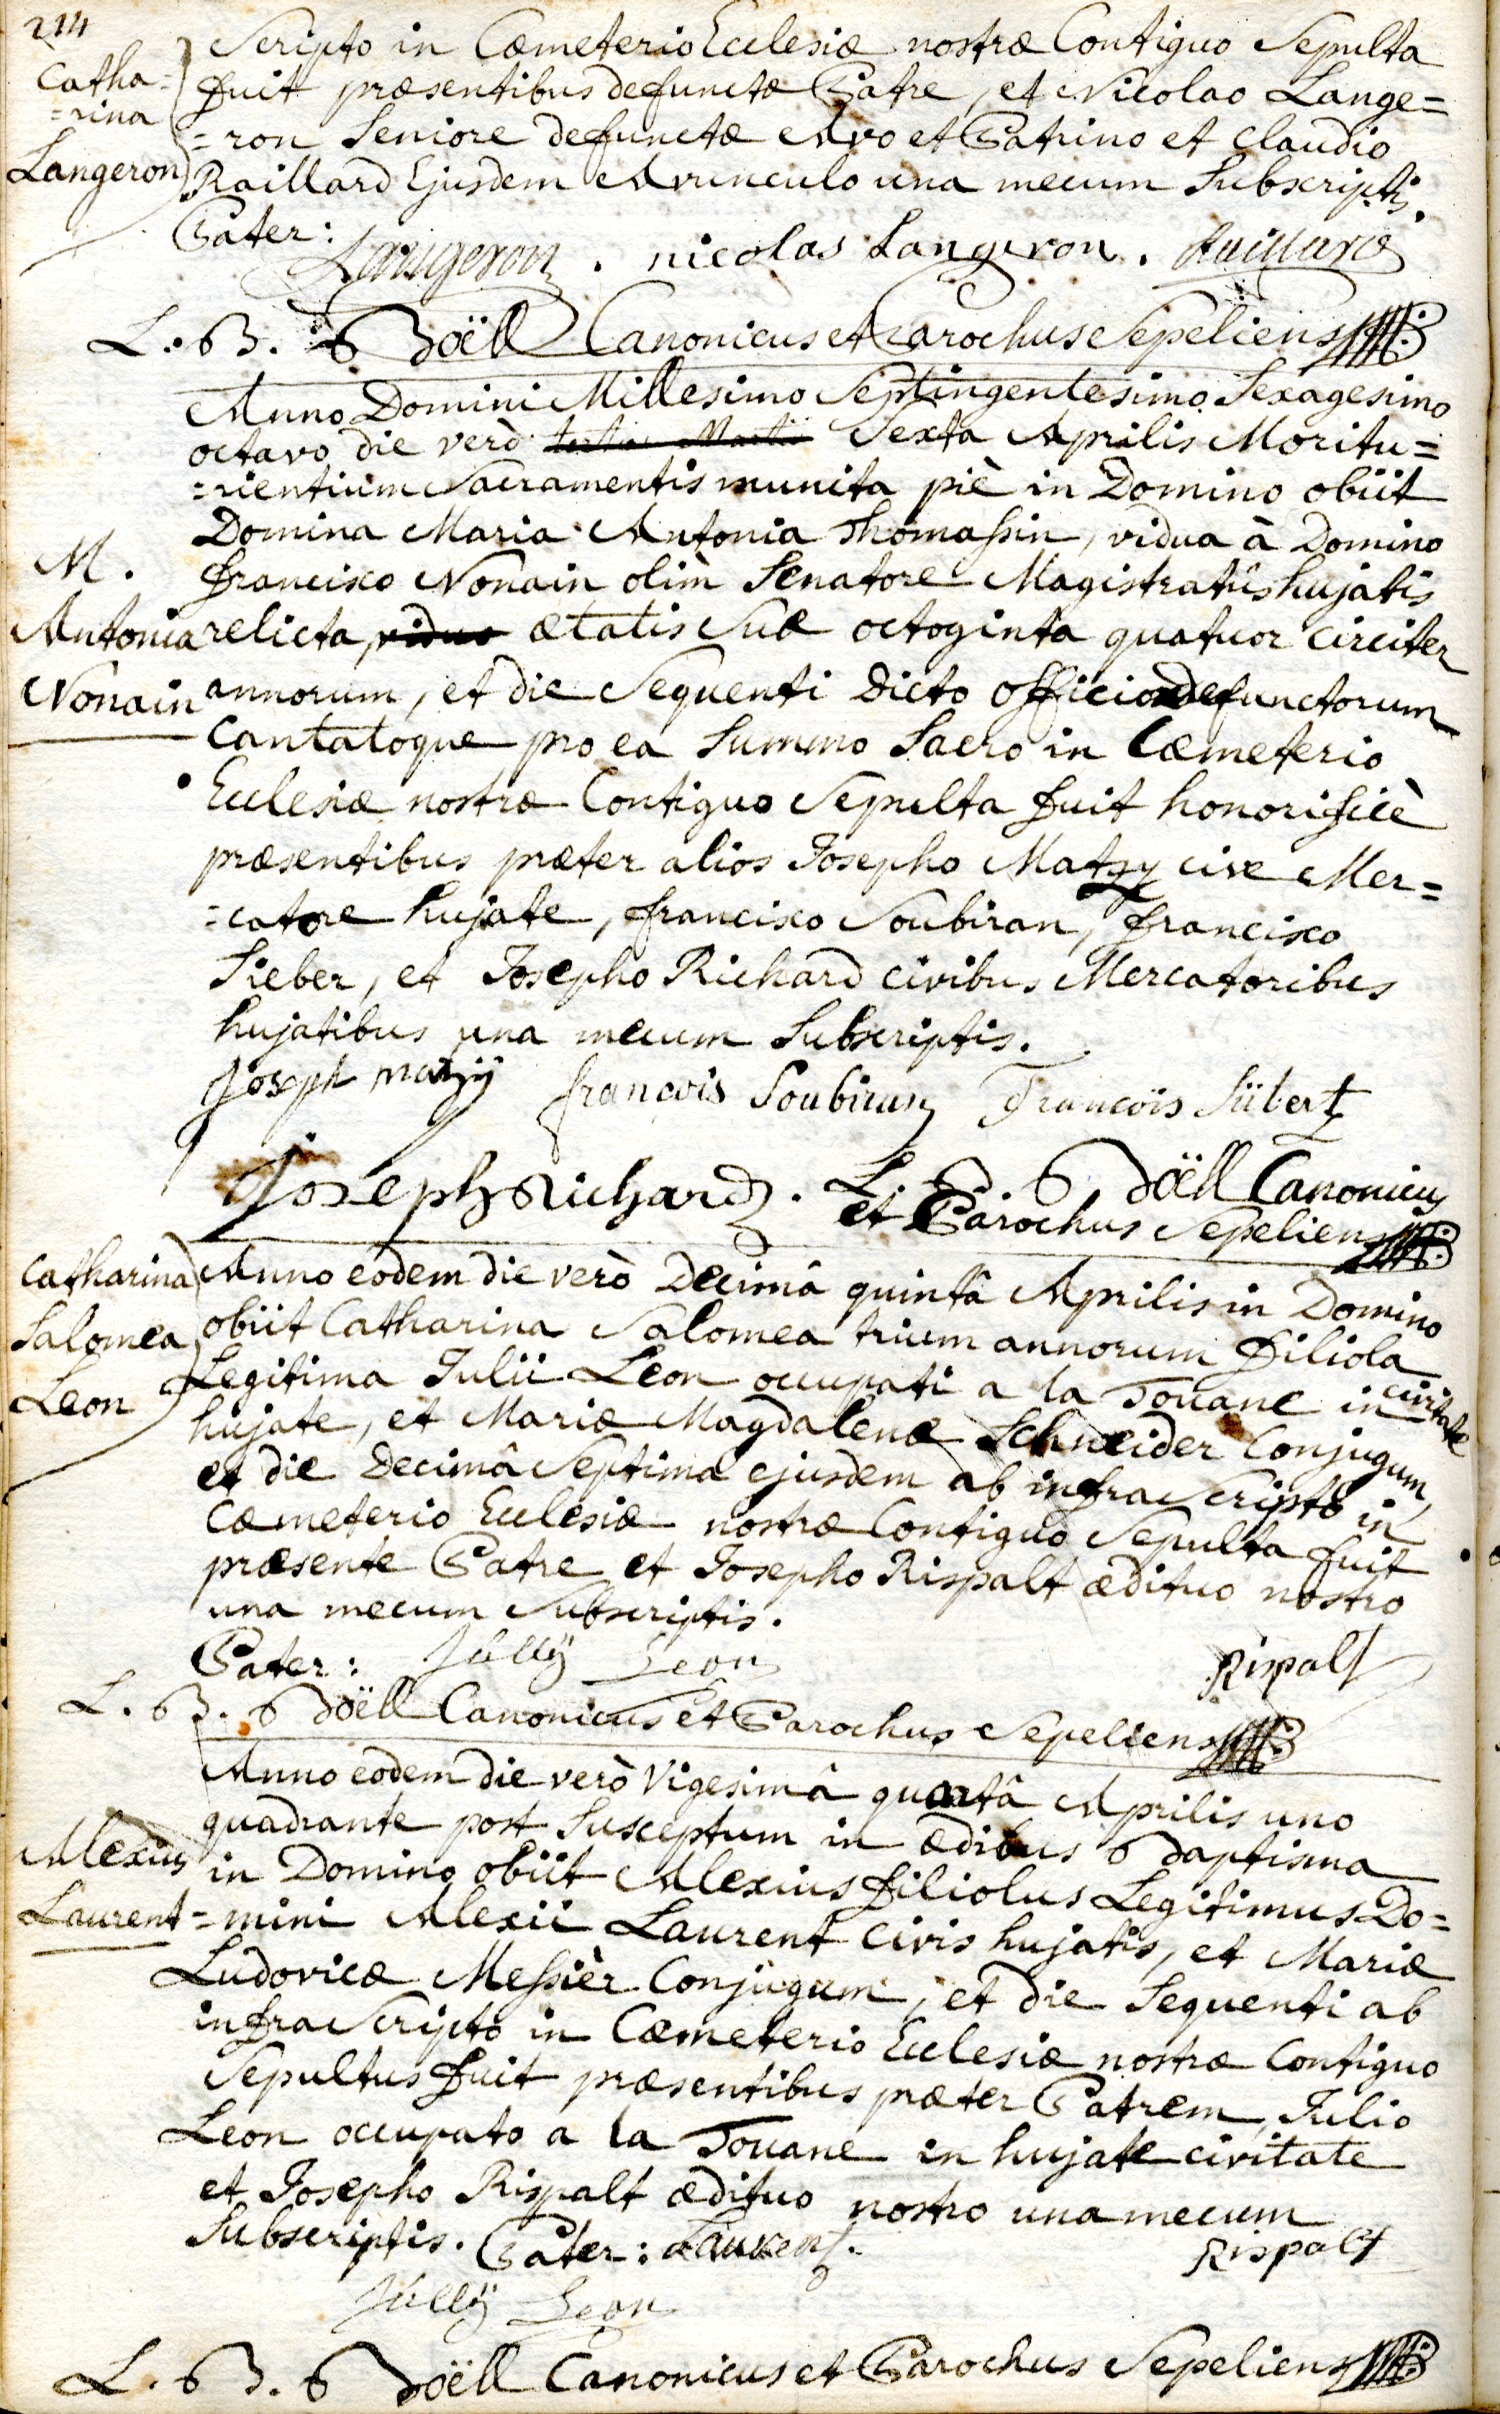 214
Scripto in Cæmeterio Ecclesiæ nostræ Contiguo Sepulta
Catha=
fuit præsentibus defunctæ Patre, et Nicolao Lange=
=rina
=ron Seniore defunctæ Avo et Patrino et Claudio
Langeron
Raillard Ejusdem Avunculo una mecum Subscriptis.
Pater:
Langeron . nicolas Langeron . Raillard
L. B. Boëll Canonicus et Parochus Sepeliens
Anno Domini Millesimo Septingentesimo Sexagesimo
octavo die verò tertia Martii Sexta Aprilis Moritu=
=rientium Sacramentis munita piè in Domino obiit
Domina Maria Antonia Thomassin, vidua à Domino
M.
francisco Nonain olim Senatore Magistratûs hujatis
Antonia
relicta, vidua ætatis Suæ octoginta quatuor circiter
Nonain
annorum, et die Sequenti Dicto officio defunctorum
Cantatoque pro ea Summo Sacro in Cæmeterio
Ecclesiæ nostræ Contiguo Sepulta fuit honorificè
præsentibus præter alios Josepho Matzy cive Mer=
=catore hujate, francisco Soubiran, francisco
Sieber, et Josepho Richard civibus Mercatoribus
hujatibus una mecum Subscriptis.
Joseph mazÿ françois Soubiran François Sübert
Joseph Richard . L. B. Boëll Canonicus
et Parochus Sepeliens
Catharina
Anno eodem die verò Decimâ quintâ Aprilis in Domino
Salomea
obiit Catharina Salomea trium annorum filiola
Leon
Legitima Julii Leon occupati a la Douane in civitate
hujate, et Mariæ Magdalenæ Schneider Conjugum,
et die Decimâ Septima ejusdem ab infra Scripto in
Cæmeterio Ecclesiæ nostræ Contiguo Sepulta fuit
præsente Patre et Josepho Rispalt ædituo nostro
una mecum Subscriptis.
Pater: Jülly Leon Rispalt
L. B. Boëll Canonicus et Parochus Sepeliens
Anno eodem die verò Vigesimâ quartâ Aprilis uno
quadrante post Susceptum in ædibus Baptisma
Alexius
in Domino obiit Alexius filiolus Legitimus Do=
Laurent
=mini Alexii Laurent Civis hujatis, et Mariæ
Ludovicæ Messièr Conjugum, et die Sequenti ab
infra Scripto in Cæmeterio Ecclesiæ nostræ Contiguo
Sepultus fuit præsentibus præter Patrem, Julio
Leon occupato a la Douane in hujate civitate
et Josepho Rispalt ædituo nostro una mecum
Subscriptis. Pater: Laurent. Rispalt
Jülly Leon
L. B. Boëll Canonicus et Parochus Sepeliens